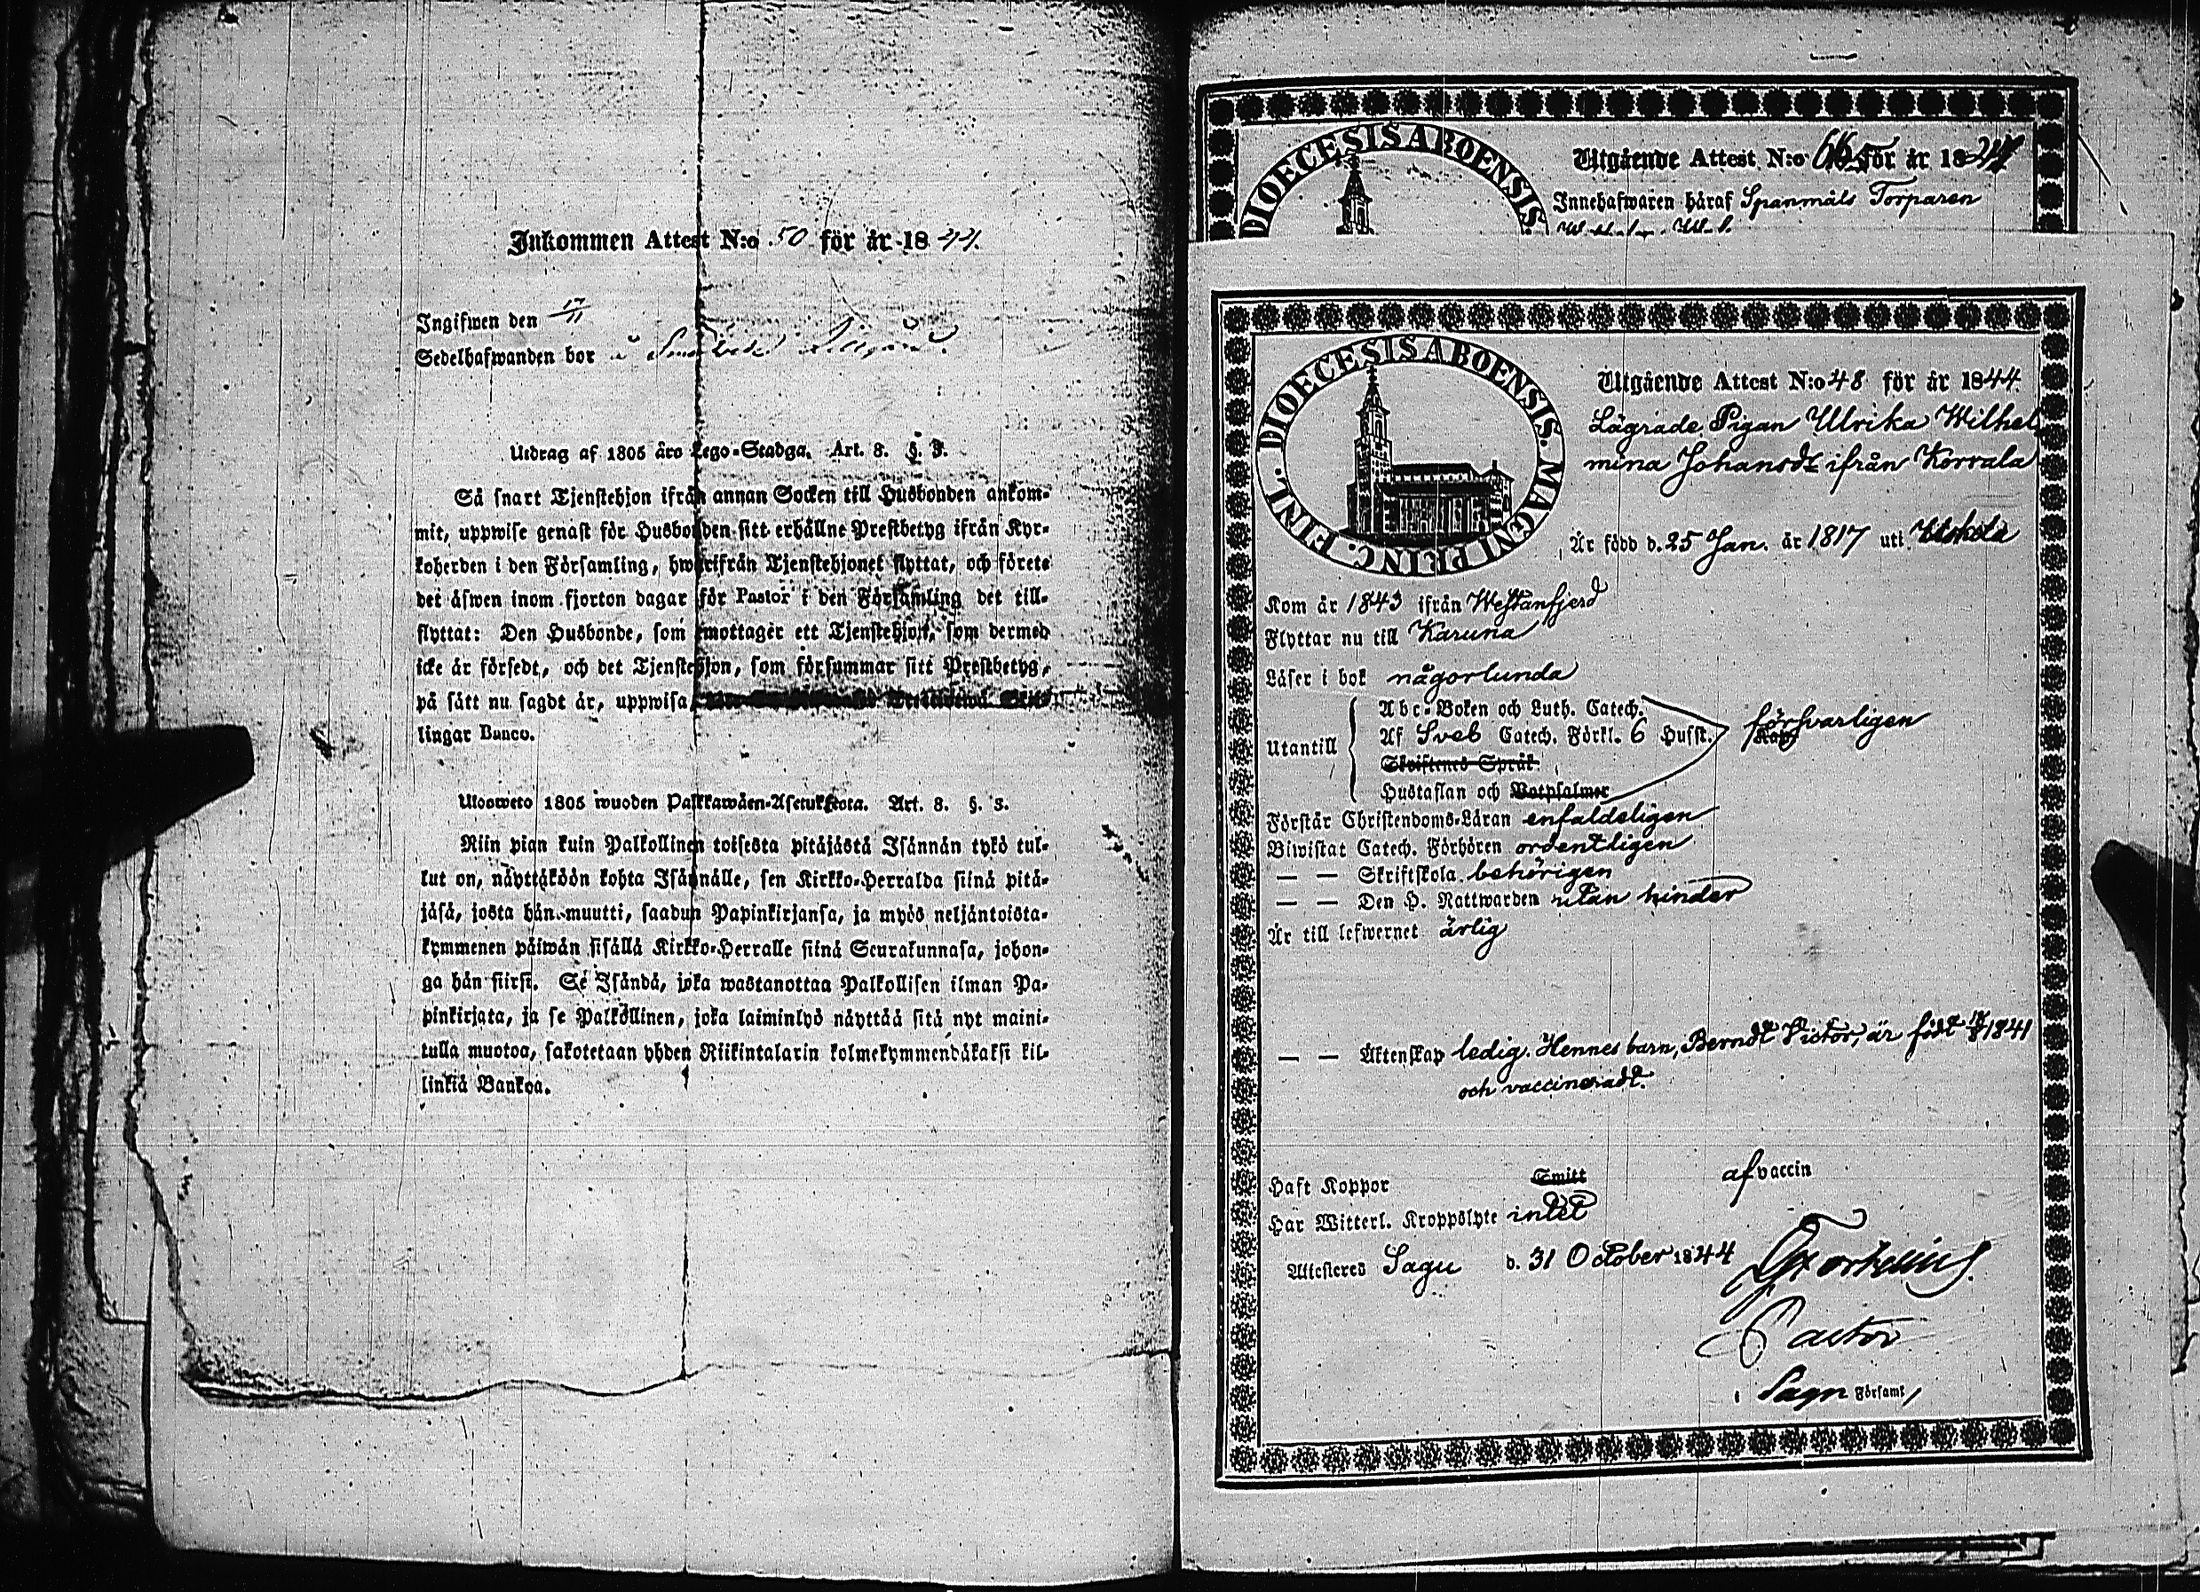 Inkommen Attest N:o 50 för år 1844.
Ingifwen den 17/11
Sedelhafwanden bor
Utdrag af 1805 års Lego-Stadga. Art. 8. §. 3.
Så snart Tjenstehjon ifrån annan Socken till Husbonden ankom-
mit, uppwise genast för Husbonden sitt erhållne Prestbetyg ifrån Kyr-
koherden i den Församling, hwarifrån Tjenstehjonet flyttat, och förete
det äfwen inom fjorton dagar för Pastor i den Församling det till-
flyttat: Den Husbonde, som emottager ett Tjenstehjon, som dermed
icke är försedt, och det Tjenstehjon, som försummar sitt Prestbetyg,
på sätt nu sagdt är, uppwisa,
lingar Banco.
Ulosweto 1805 wuoden Palkkawäen-Asetuksesta. Art. 8. §. 3.
Niin pian kuin Palkollinen toisesta pitäjästä Isännän tykö tul-
lut on, näyttäköön kohta Isännälle, sen Kirkko-Herralda siinä pitä-
jäsä, josta hän muutti, saadun Papinkirjansa, ja myös neljäntoista-
kymmenen päiwän sisällä Kirkko-Herralle siinä Seurakunnasa, johon-
ga hän siirsi. Se Isändä, joka wastanottaa Palkollisen ilman Pa-
pinkirjata, ja se Palkollinen, joka laiminlyö näyttää sitä nyt maini-
tulla muotoa, sakotetaan yhden Riikintalarin kolmekymmendäkaksi kil-
linkiä Bankoa.
DIOECESIS ABOENSIS.
Utgående Attest N:o för år 18
Innehafwaren häraf Spanmåls Torparen
DIOECESIS ABOENSIS. MAGNI PRINC. FINL.
Utgående Attest N:o 48 för år 1844
Lägrade Pigan Ulrika Wilhel
mina Johansdt ifrån Korrala
Är född d. 25 Jan. år 1817 uti Uskela
Kom år 1843 ifrån Westanfjerd
Flyttar nu till Karuna
Läser i bok någorlunda
Utantill
Abc-Boken och Luth. Catech.
Af Sveb Catech. Förkl. 6 Hufst.
försvarligen
Skriftenes Språk.
Hustaflan och Botpsalmer
Förstår Christendoms-Läran enfaldeligen
Biwistat Catech. Förhören ordentligen
— — Skriftskola behörigen
— — Den H. Nattwarden utan hinder
Är till lefwernet ärlig
— — Äktenskap ledig. Hennes barn, Berndt Victor, är födt 1841
och vaccineradt.
Haft Koppor Smitt af vaccin
Har Witterl. Kroppslyte intet
Attesteres Sagu d. 31 October 1844
Pastor
i Sagu Församl